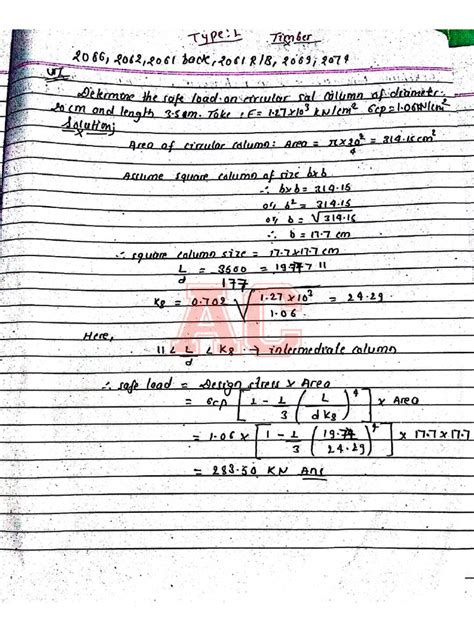 Type: 1 Timber
2066, 2062, 2061 back, 2061 R/B, 2069, 2074
Determine the safe load on circular sal column of diameter
20 cm and length 3.5m. Take : E = 1.27x10³ KN/cm² 6cp = 1.06KN/cm²
Solution;
Area of circular column: Area = πx20²/4 = 314.15cm²
Assume square column of size bxb
∴ bxb = 314.15
or, b² = 314.15
or, b = √314.15
∴ b = 17.7 cm
∴ square column size = 17.7x17.7 cm
L/d = 3500/177 = 19.77 > 11
K8 = 0.702 √(1.27x10³/1.06) = 24.29
AC
Here,
11 < L/d < K8 → intermediate column
∴ safe load = Design stress x Area
= 6cp [1 - 1/3 (L/dK8)⁴] x Area
= 1.06 x [1 - 1/3 (19.77/24.29)⁴] x 17.7x17.7
= 283.50 KN Ans